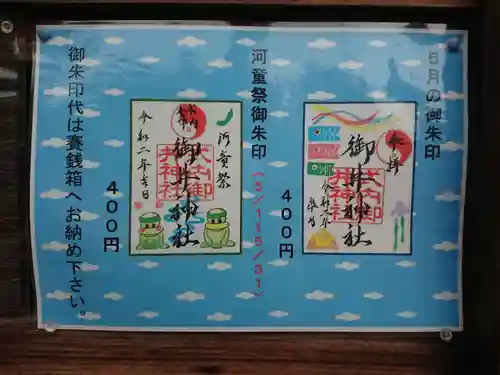 5月の御朱印
奉拝
御井神社
令和二年
400円
河童祭御朱印
(5/1~5/31)
河童祭
御井神社
令和二年吉日
400円
御朱印代は賽銭箱へお納め下さい。